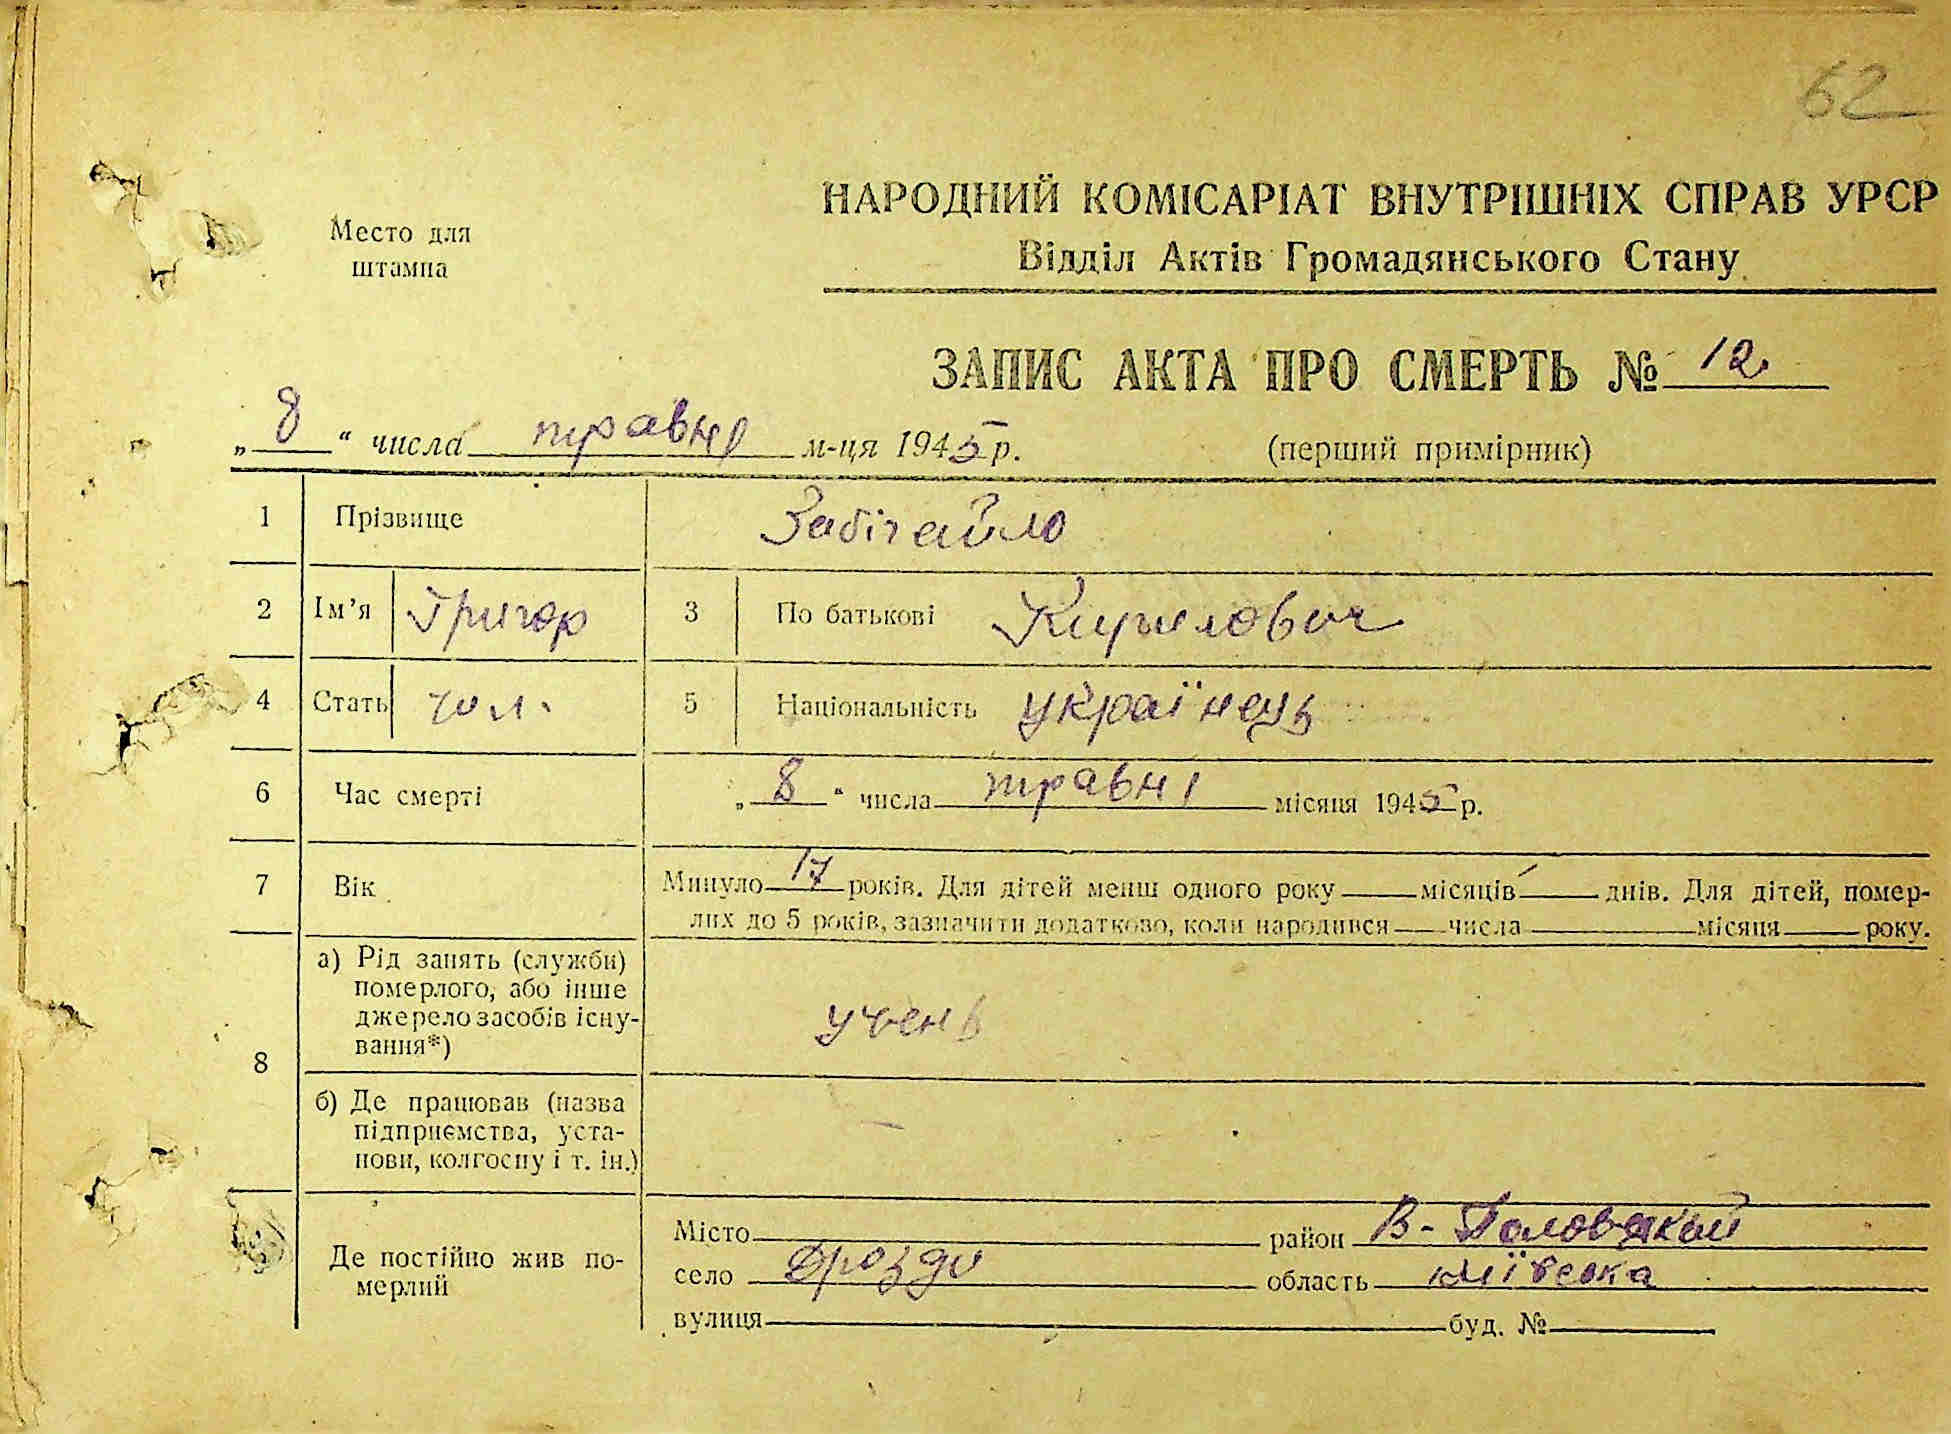 62
Место для
штампа
НАРОДНИЙ КОМІСАРІАТ ВНУТРІШНІХ СПРАВ УРСР
Відділ Актів Громадянського Стану
ЗАПИС АКТА ПРО СМЕРТЬ № 12
„ 8 “ числа травня м-ця 1945 р.
(перший примірник)
1 Прізвище Забігайло
2 Ім’я Григор 3 По батькові Кирилович
4 Стать чол. 5 Національність українець
6 Час смерті „ 8 “ числа травня місяця 1945 р.
7 Вік Минуло 17 років. Для дітей менш одного року місяців днів. Для дітей, помер-
лих до 5 років, зазначити додатково, коли народився числа місяця року.
8 а) Рід занять (служби)
померлого, або інше
джерело засобів існу-
вання*)
учень
б) Де працював (назва
підприємства, уста-
нови, колгоспу і т. ін.)
9 Де постійно жив по-
мерлий
Місто район В-Половецкий
село Дрозди область Київська
вулиця буд. №